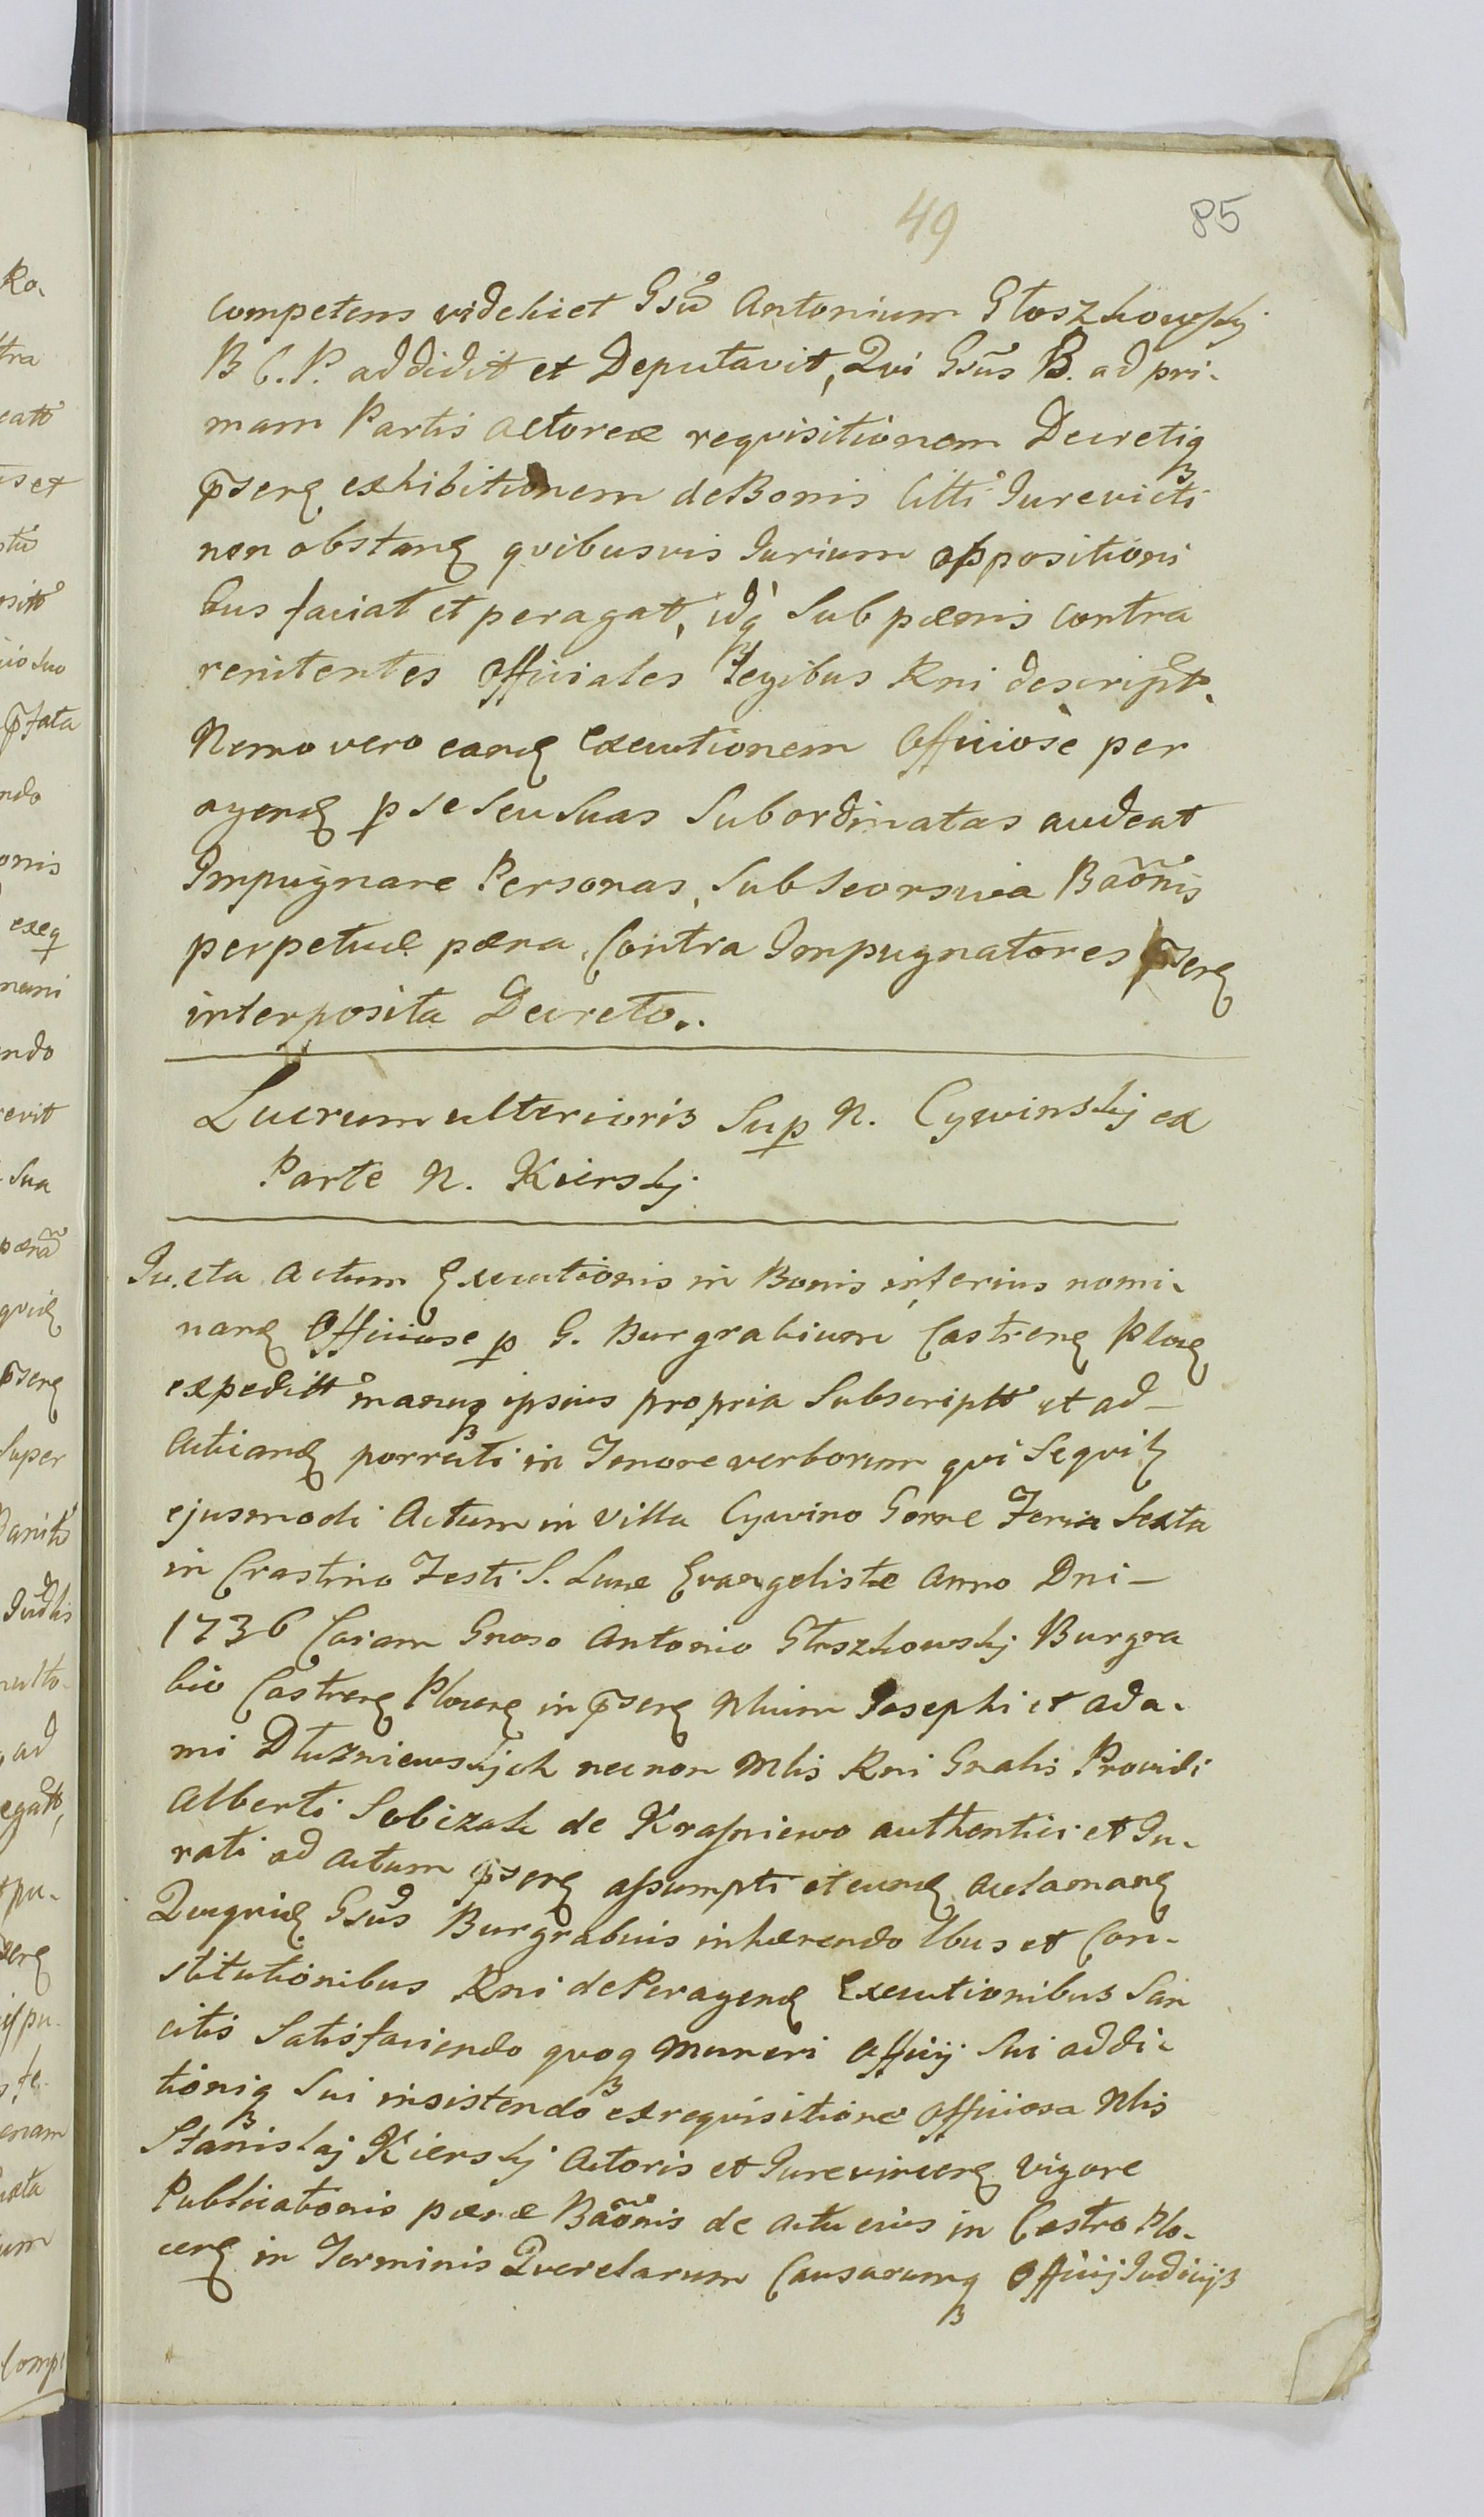 49
85
competens videlicet Gsũ Antonium Głoszkowskj
B C. P. addidit et Deputavit, Qui Gsũs B. ad pri-
mam Partis actoreæ requisitionem Decretiq
p̃senꝭ exhibitionem de Bonis Citti Jurevicti
non obstanꝭ quibusvis Jurium oppositioni
bus faciat et peragat, idq̃ Sub pænis contra
renitentes Officiales Legibus Rni descript.
Nemo vero eanꝭ Executionem Officiosè per
agenꝭ p se seu Suas Subordinatas audeat
Impugnare Personas, Sub seorsiva Baõnis
perpetuæ pæna, Contra Impugnatores p̃senꝭ
interposita Decreto..
Lucrum ulterioris Sup N. Cywinskj ex
Parte N. Kierskj
Juxta Actum Executionis in Bonis inferius nomi-
nanꝭ Officiose p G. Burgrabium Castrenꝭ Plocꝭ
expeditt manuq ipsius propria Subscriptt et ad-
acticanꝭ porrecti in Tenore verborum qui Sequitꝭ
ejusmodi Actum in Villa Cywino Gorne Feria Sexta
in Crastino Festi S. Lucæ Evangelistæ Anno Dni-
1736 Coram Gnoso Antonio Głoszkowskj Burgra
bio Castrenꝭ Plocenꝭ in p̃senꝭ Nlium Josephi et Ada-
mi Dłuzniewskjch necnon Mlis Rni Gnalis Providi
Alberti Sobizak de Krasniewo authentici et Ju-
rati ad Actum p̃senꝭ assumpti et eunꝭ aclamanꝭ
Quiquiꝭ Gsũs Burgrabius inhærendo Lbus et Con-
stitutionibus Rni de Peragenꝭ Executionibus San
citis Satisfaciendo quoq muneri Officij Sui addi-
tioniq Sui insistendo ex requisitione Officiosa Nlis
Stanislaj Kierskj Actoris et Jurevincenꝭ vigore
Publicationis pænæ Baõnis de actu ejus in Castro Plo-
cenꝭ in Terminis Querelarum Causarumq Officij Judicijs